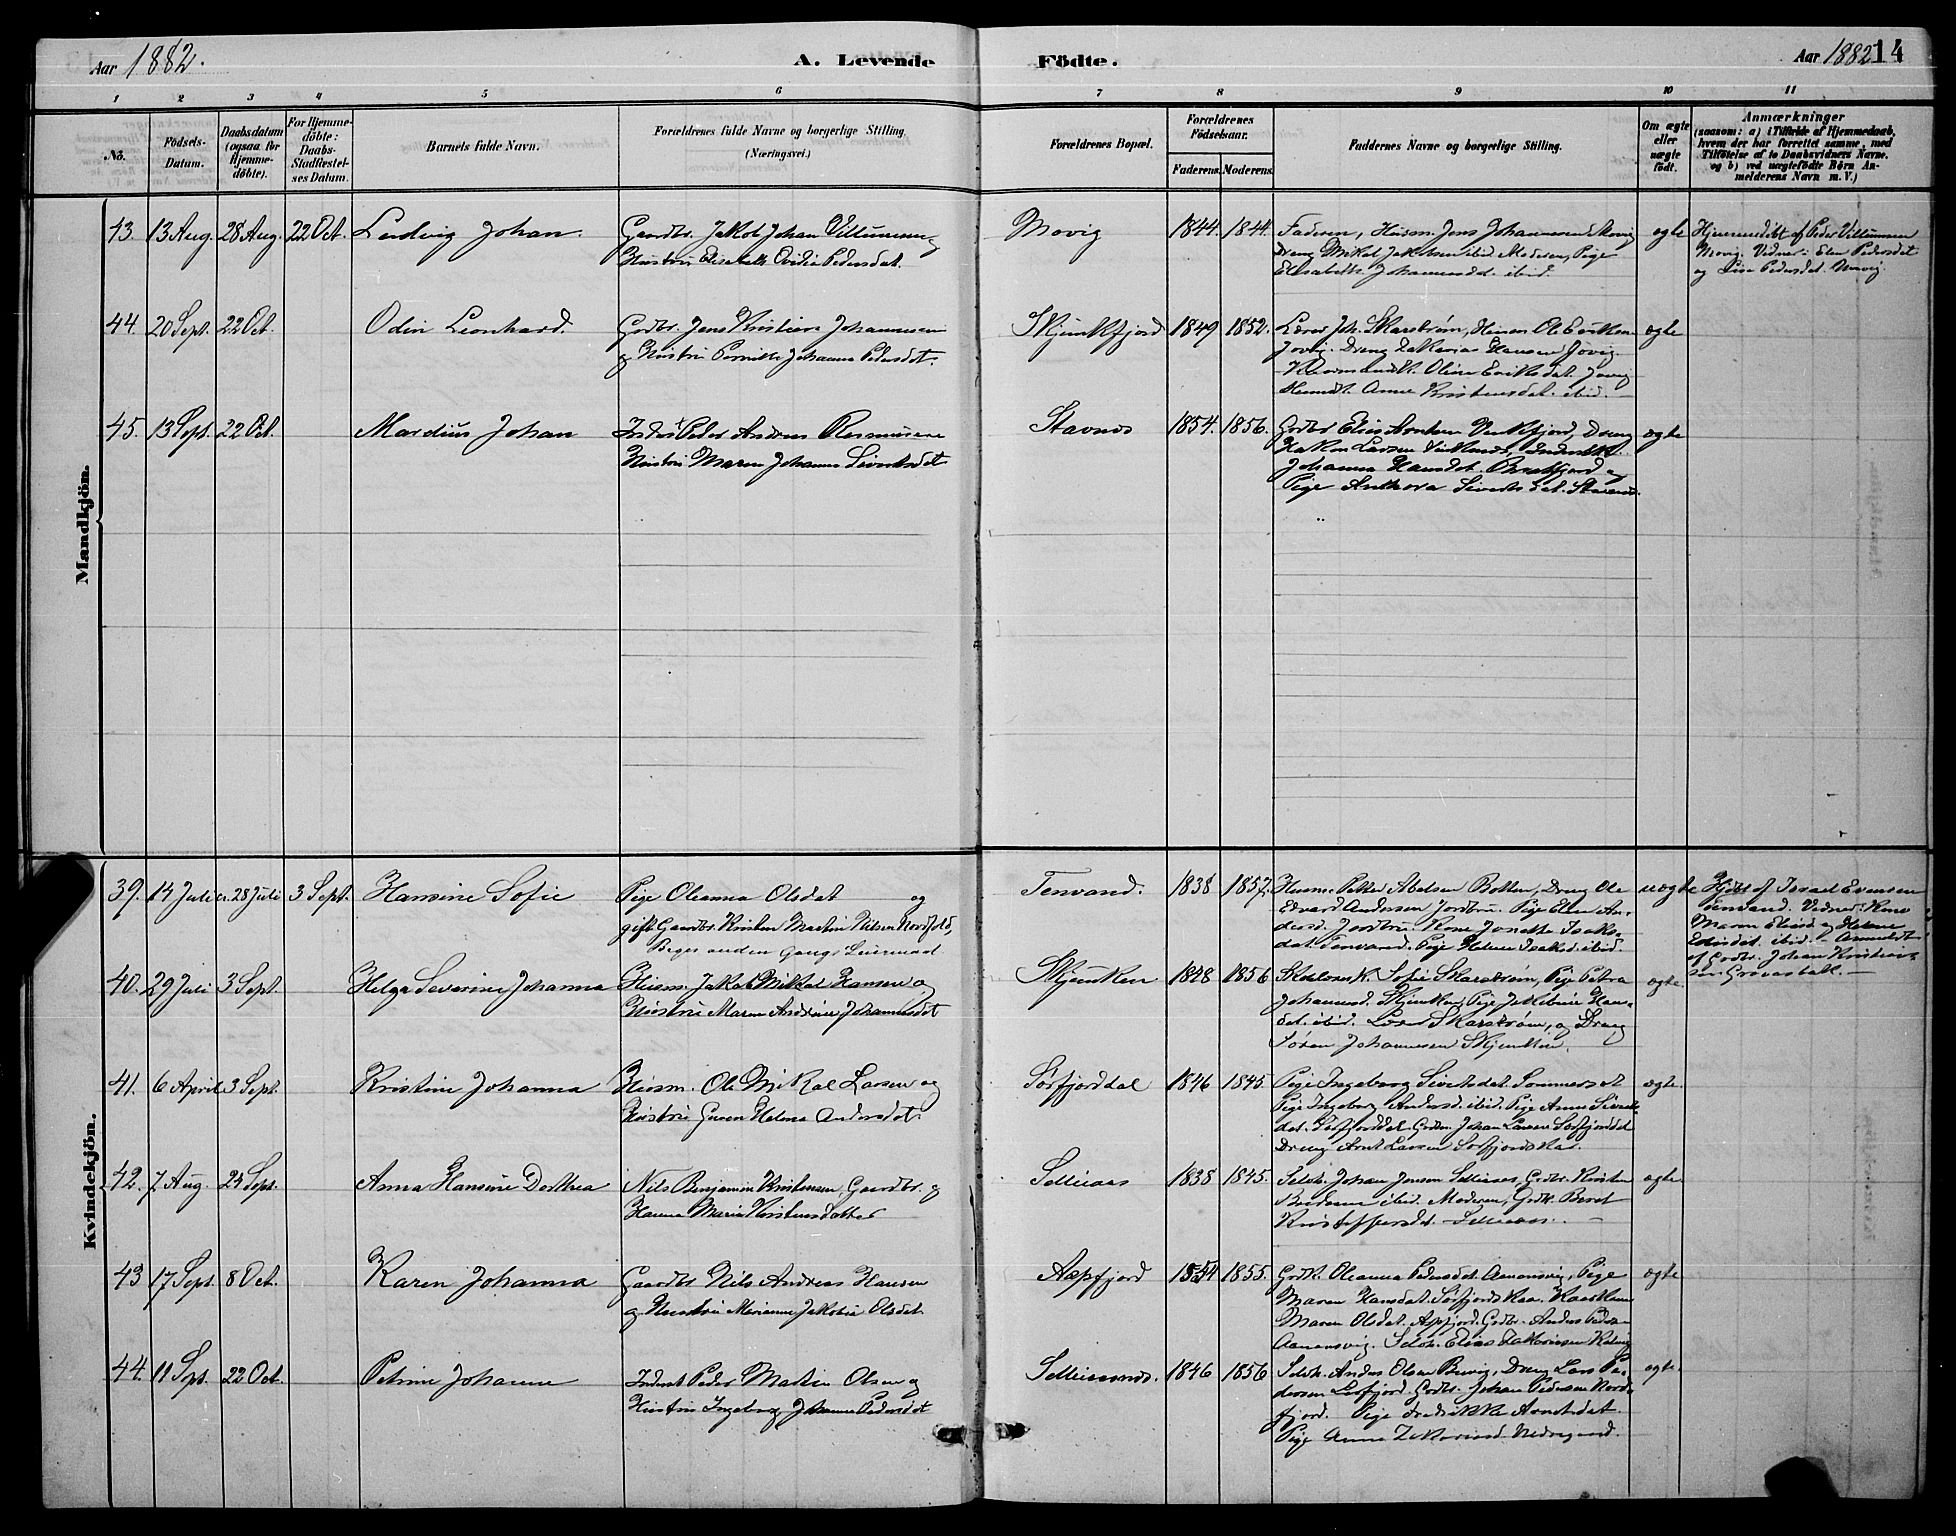 Aar 1882.
A. Levende Födte.
Aar 1882 14
1 2 3 4 5 6 7 8 9 10 11
No.
Födsels-Datum.
Daabsdatum (ogsaa for Hjemme-döbte).
For Hjemme-döbte: Daabs-Stadfæstel-ses Datum.
Barnets fulde Navn.
Forældrenes fulde Navne og borgerlige Stilling. (Næringsvei.)
Forældrenes Bopæl.
Forældrenes Födselsaar.
Faderens. Moderens.
Faddernes Navne og borgerlige Stilling.
Om ægte eller uægte födt.
Anmærkninger
(saasom: a) i Tilfælde af Hjemmedaab, hvem der har forrettet samme, med Tilföielse af to Daabsvidners Navne, og b) ved uægtefödte Börn An-melderens Navn m. V.)
Mandkjön.
43. 13 Aug. 28 Aug. 22 Oct. Ludvig Johan.
Gaardbr. Jakob Johan Villumsen og
Hustru Elisabeth Ovidia Pedersdat.
Movig 1844. 1844.
Faderen, Husm. Jens Johannesen
Dreng Mikal Jakobsen ibid. Moderen, Pige
Elisabeth Johannesdat. ibid.
ægte
Hjemmedöbt af Peder Villumsen
Movig. Vidner: Elen Pedersdat
og Lisa Pedersdat. Movig.
44. 20 Sept. 22 Oct. Odin Leonhard.
Grdbr. Jens Kristian Johannesen
og Hustru Pernille Johanna Pedersdat.
Skjunkfjord 1849 1852.
Lærer Joh. Skarström, Husm. Ole
Jövig. Dreng Zakarias Hansen Jövig.
Oline Eriksdat. Jövig
Anne Kristensdat. ibid.
ægte
45. 13 Sept. 22 Oct. Mardius Johan
Inders. Peder Andreas Rasmussen
Hustru Maren Johanna Sivertsdat
Stavnes 1854. 1856.
Grdbr Elias Arntsen Vinkfjord, Dreng
Hakon Larsen
Johanna Hansdat. og
Pige Anthora Sivertsdat. Stavnes.
ægte
Kvindekjön.
39. 14 Juli c. 28 Juli 3 Sept. Hansine Sofie
Pige Oleanna Olsdat og
gift Gaardbr. Kristen Martin Nilsen Nordfjord,
Begges anden Gangs Leiermaal
Tenvand. 1838 1857.
Husm. Petter Abelsen Botten, Dreng Ole
Edvard Andersen Jordbru. Pige Elen An-
dersd. Jordbru. Kone Jonette Isaks-
dat Tenvand. Pige Helene Isaksd. ibid.
uægte
Hjdbt. af Israel Evensen
Tenvand. Vidner: Kone
Maren Eliasd. og Helene
ibid. - Anmeldt
af Grdbr. Johan Kristian-
sen
40. 29 Juli 3 Sept. Helga Severine Johanna
Husm. Jakob Mikkal Hansen og
Hustru Maren Andrine Johannesdat
Skjunken 1828 1856
Sofie Skarström, Pige Petra
Johannesd. Skjunken, Pige Jakobine Hans-
dat. ibid. Lærer Skarström, og Dreng
Sören Johannesen Skjunken.
ægte.
41. 6 April 3 Sept. Kristine Johanna
Husm. Ole Mikal Larsen og
Hustru Helena Andersdat.
Sörfjorddal 1846 1845.
Pige Ingeborg Sivertsdat. Sommerset
Pige Ingeborg Andersd. ibid. Pige Anne Siverts-
dat. Sörfjorddal. Grdbr. Johan Larsen Sörfjorddal
Dreng Arnt Larsen
ægte.
42. 7 Aug. 24 Sept. Anna Hansine Dorthea
Nils Benjamin Kristensen, Gaardbr. og
Hanna Maria Kristensdatter
Selliaas 1838 1845.
Selvst. Johan Jensen Selliaas, Grdbr. Kristen
ibid. Moderen, Grdk. Beret
Kristoffersdat. Selliaas. -
ægte
43 17 Sept. 8 Oct. Karen Johanna
Gaardbr Nils Andreas Hansen
og Hustru Marianne Jakobine Olsdat.
Aspfjord 1854 1855.
Grdk. Oleanna Pedersdat. Amonsvig, Pige
Maren Hansdat.
Maren Olsdat. Aspfjord. Grdbr. Anders Pedersen
Amonsvig. Selvst. Elias Zakariasen
ægte
44. 11 Sept. 22 Oct. Petrine Johanne
Inderst Peder Martin Olsen og
Hustru Ingeborg Johanna Pedersdat
Selliaasnes. 1846 1856
Selvst. Anders Olsen Bervig, Dreng Lars Pe-
dersen Grdbr. Johan Pedersen Nord-
fjord. Pige Fredrikke Arntsdat.
Pige Anna Zakariasd.
ægte.